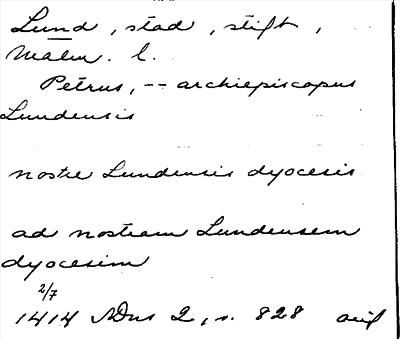 Lund, stad, stift,
Malm. l.
Petrus, -- archiepiscopus
Lundensis
nostre Lundensis dyocesis
ad nostram Lundensem
dyocesim
2/7
1414 SDns 2, s. 828